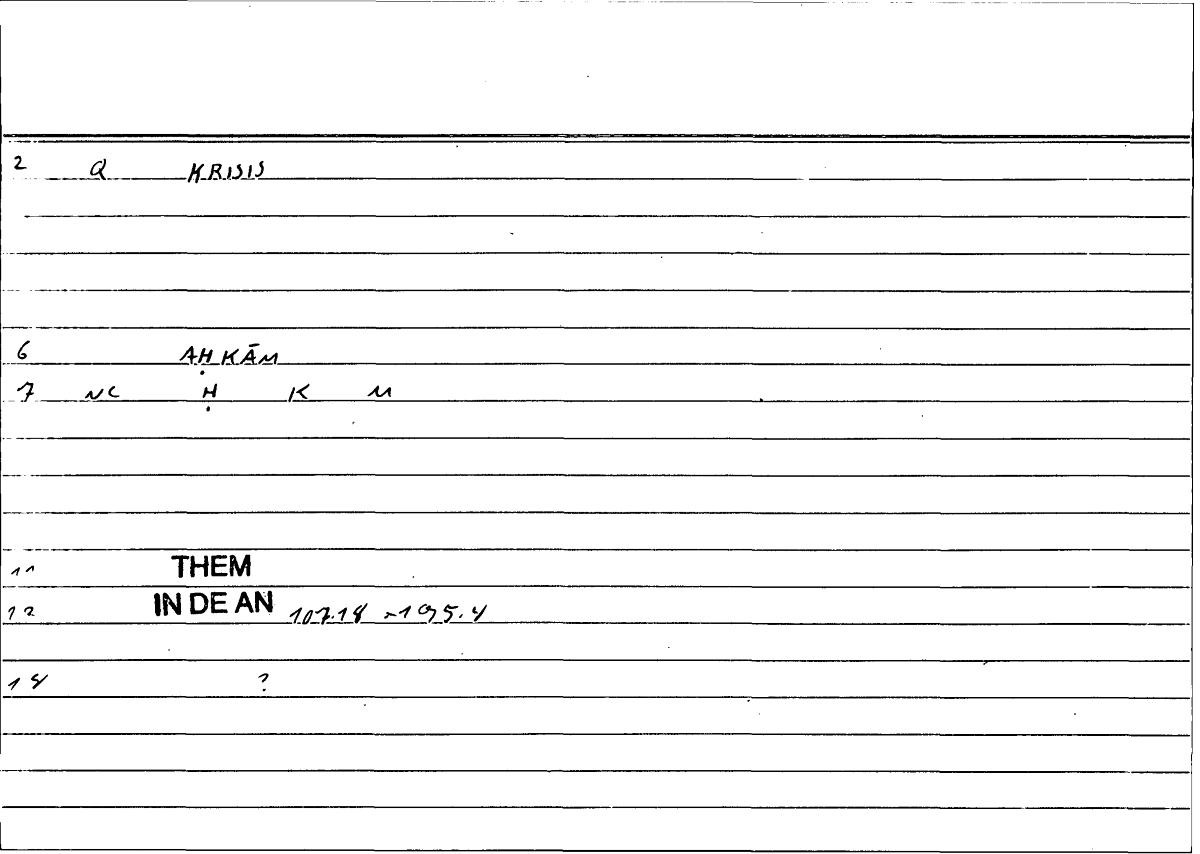 2 Q KRISIS
6 AḤKĀM
7 NC Ḥ K M
11 THEM
12 IN DE AN 107.18
14 ?